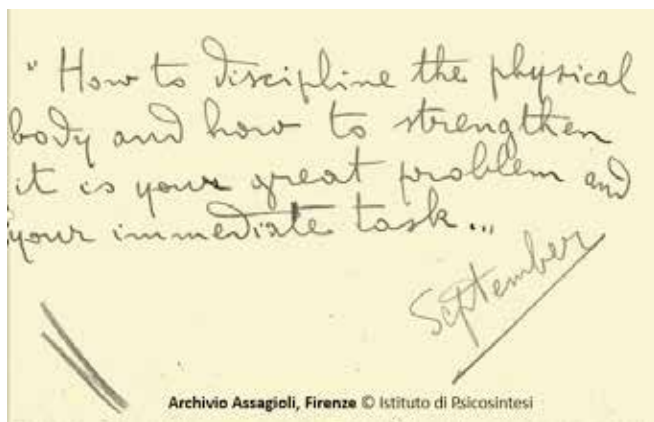 " How to discipline the physical
body and how to strengthen
it is your great problem and
your immediate task...
September
Archivio Assagioli, Firenze © Istituto di Psicosintesi